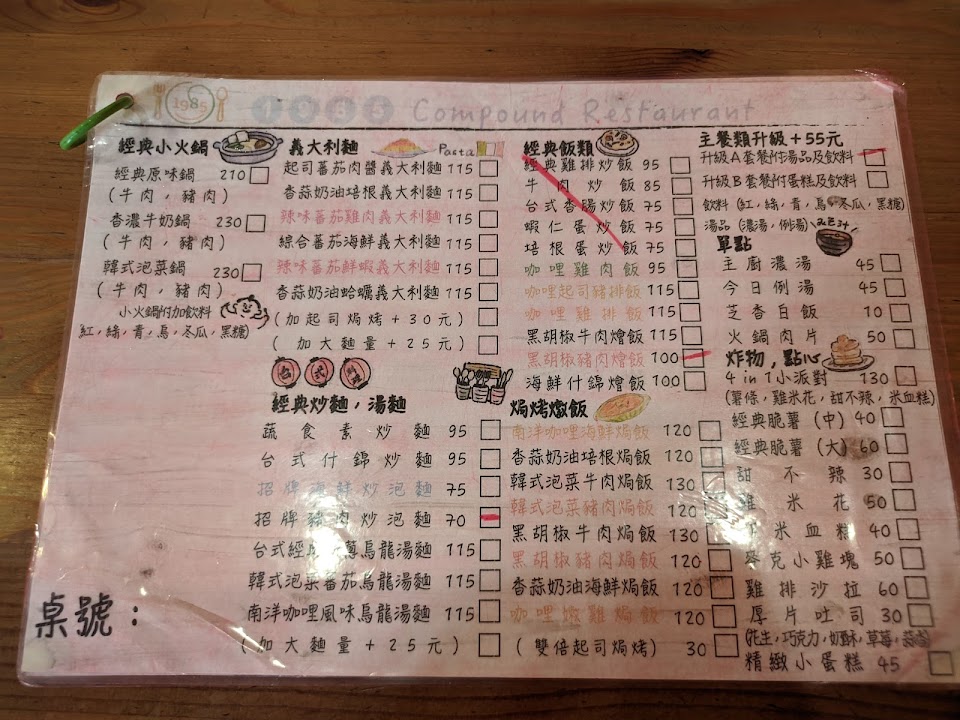 1985
1985 Compound Restaurant
經典小火鍋
經典原味鍋 210
(牛肉,豬肉)
香濃牛奶鍋 230
(牛肉,豬肉)
韓式泡菜鍋 230
(牛肉,豬肉)
小火鍋附加飲料
紅,綠,青,烏,冬瓜,黑糖)
桌號:
義大利麵 Pasta
起司蕃茄肉醬義大利麵 115
香蒜奶油培根義大利麵 115
辣味蕃茄雞肉義大利麵 115
綜合蕃茄海鮮義大利麵 115
辣味蕃茄鮮蝦義大利麵 115
香蒜奶油蛤蠣義大利麵 115
(加起司焗烤+30元)
(加大麵量+25元)
台式料理
經典炒麵,湯麵
蔬食素炒麵 95
台式什錦炒麵 95
招牌海鮮炒泡麵 75
招牌豬肉炒泡麵 70
台式經典 烏龍湯麵 115
韓式泡菜蕃茄烏龍湯麵 115
南洋咖哩風味烏龍湯麵 115
(加大麵量+25元)
經典飯類
經典雞排炒飯 95
牛肉炒飯 85
台式香腸炒飯 75
蝦仁蛋炒飯 75
培根蛋炒飯 75
咖哩雞肉飯 95
咖哩起司豬排飯 115
咖哩雞排飯 115
黑胡椒牛肉燴飯 115
黑胡椒豬肉燴飯 100
海鮮什錦燴飯 100
焗烤燉飯
南洋咖哩海鮮焗飯 120
香蒜奶油培根焗飯 120
韓式泡菜牛肉焗飯 130
韓式泡菜豬肉焗飯 120
黑胡椒牛肉焗飯 130
黑胡椒豬肉焗飯 120
香蒜奶油海鮮焗飯 120
咖哩嫩雞焗飯 120
(雙倍起司焗烤) 30
主餐類升級+55元
升級A套餐附湯品及飲料
升級B套餐附蛋糕及飲料
飲料(紅,綠,青,烏,冬瓜,黑糖)
湯品(濃湯,例湯)
單點
主廚濃湯 45
今日例湯 45
芝香白飯 10
火鍋肉片 50
炸物,點心
4 in 1小派對 130
(薯條,雞米花,甜不辣,米血糕)
經典脆薯(中) 40
經典脆薯(大) 60
甜不辣 30
雞米花 50
米血糕 40
麥克小雞塊 50
雞排沙拉 60
厚片吐司 30
(花生,巧克力,奶酥,草莓,蒜香)
精緻小蛋糕 45